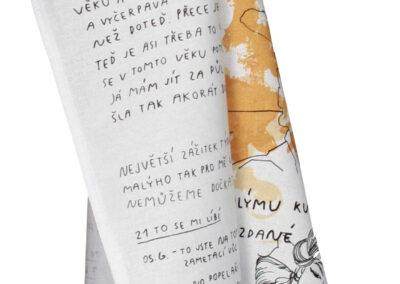 VĚKU A
A VYČERPÁVA
NEŽ DOTEĎ. PŘECE JE
TEĎ JE ASI TŘEBA TO
SE V TOMTO VĚKU POT
JÁ MÁM JÍT ZA PŮL
ŠLA TAK AKORÁT D
NEJVĚTŠÍ ZÁŽITEK TÝ
MALÝHO TAK PRO MĚ
NEMŮŽEME DOČKAT
21 TO SE MI LÍBÍ
05.G. - TO JSTE NA TO
ZAMETACÍ VŮZ
POPELÁŘ
LÝMU KU
ZDANÉ